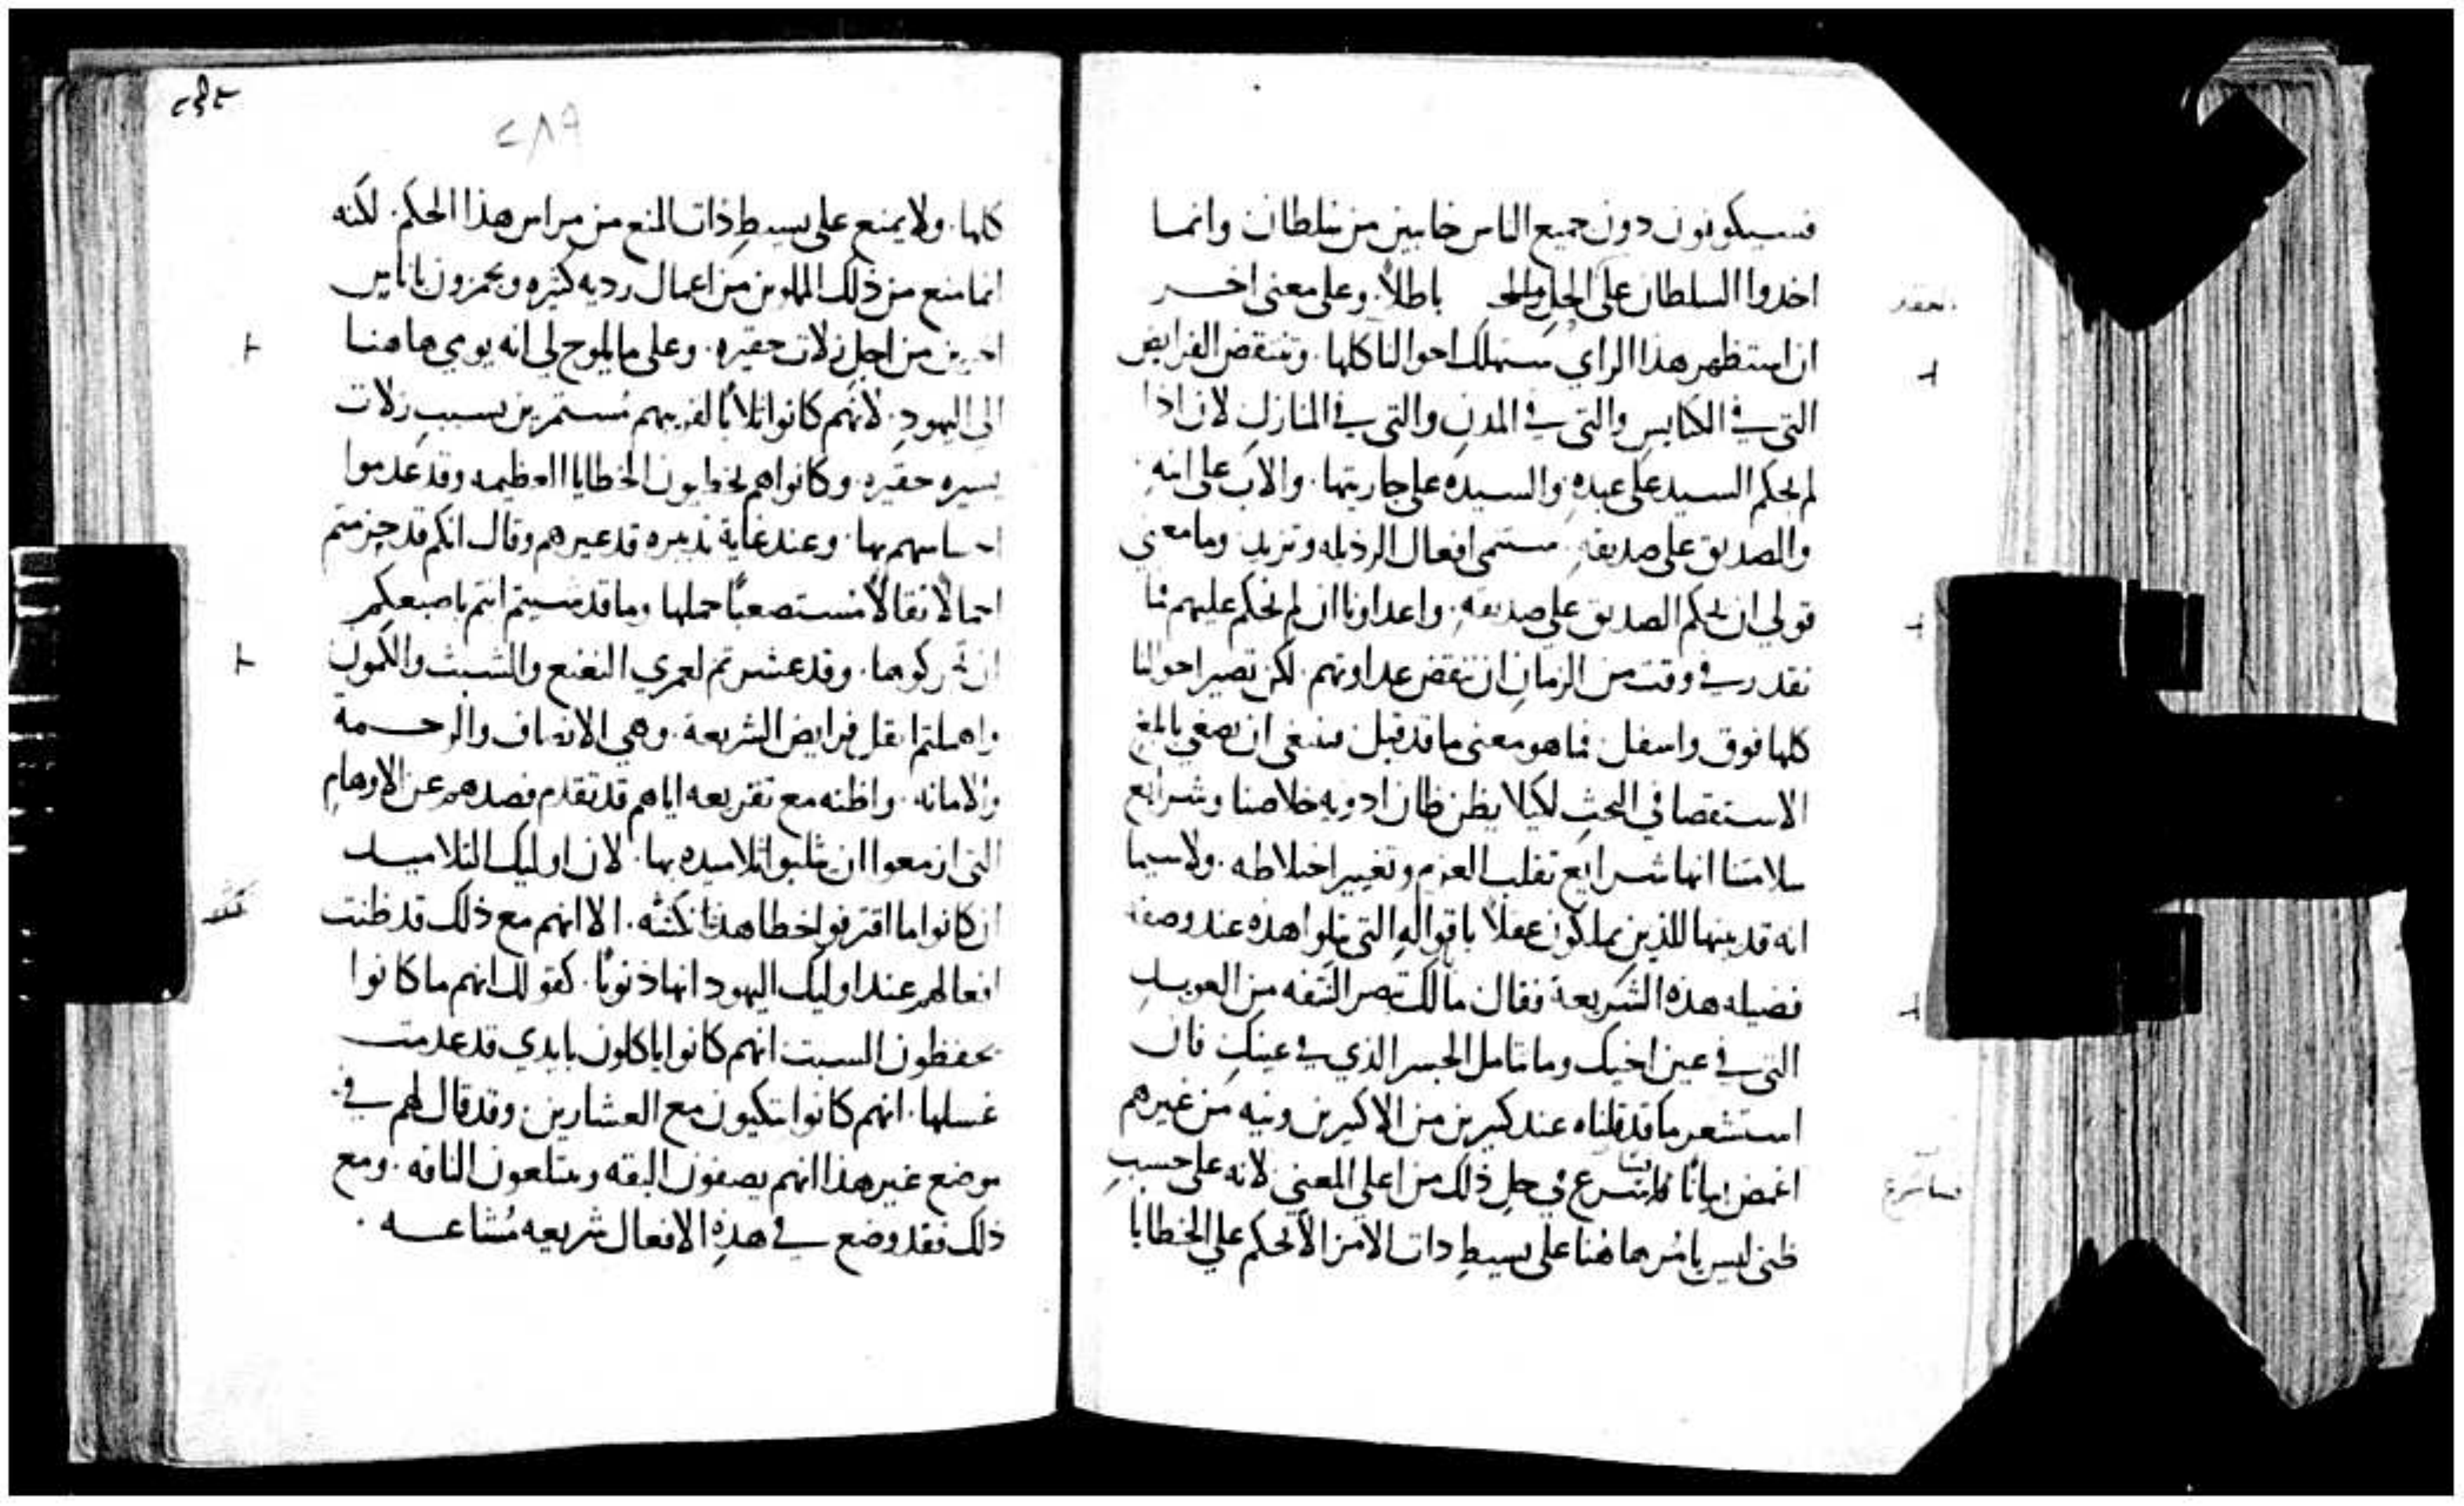 فسيكونون دون جميع الناس خايبين من سلطان وانما
اخدوا السلطان على الحل والحد باطلاً. وعلى معنى اخر
ان استظهر هذا الراي ستهلك احوالنا كلها. وتنتقض الفرايض
التي في الكنايس والتي في المدن والتي في المنازل لان اذا
لم يحكم السيد على عبده والسيده على جاريتها. والاب على ابنه
والصديق على صديقه. ستنمى افعال الرذيله وتزيد وما معنى
قولي ان يحكم الصديق على صديقه. واعداونا ان لم نحكم عليهم فما
نقدر في وقت من الزمان ان ننقض عداوتهم. لكن تصير احوالنا
كلها فوق واسفل فما هو معنى ما قد قيل فينبغي ان نصغي بالمغ
الاستقصا في البحث لكيلا يظن ظان ادويه خلاصنا وشرايع
سلامتنا انها شرايع تقلب العزم وتغيير اختلاطه. ولا سيما
انه قد بينها للذين يملكون عقلاً باقواله التي تتلوا هذه عند وصفه
فضيله هذه الشريعة فقال مالك تبصر التفه من العويد
التي في عين اخيك وما تتامل الجسر الذي في عينك فان
استشعر ما قد قلناه عند كبرين من الاكبرين ونيه من غيرهم
اغمض بيانًا فلنشرع في حل ذلك من اعلى المعني لانه على حسب
ظني ليس يامر هاهنا على بسيط دات الامر الا نحكم على الخطايا
العقد
فسا شرع
٢٨٩
كلها. ولا يمنع على بسيط ذات المنع من مراس هذا الحكم. لكنه
انما منع من ذلك المملوين من اعمال رديه كثيره ويحمزون باناس
اخرين من اجل زلات حقيره. وعلى ما يلوح لي انه يومي هاهنا
الى اليهود. لانهم كانوا ثلابًا لقريبهم مستمرين بسبب زلات
يسيره حقيره. وكانوا هم يخطيون الخطايا العظيمه وقد عدموا
احساسهم بها. وعند غاية تدبيره قد عيرهم وقال انكم قد حزمتم
احمالاً ثقالاً مستصعبًا حملها وما قد مسيتم انتم باصبعكم
ان تحركوها. وقد عشرتم لعمري النعنع والشبث والكمون
واهملتم اثقل فرايض الشريعة. وهي الانصاف والرحمة
والامانه. واظنه مع تقريعه اياهم قد تقدم فصدهم عن الاوهام
التي ازمعوا ان يثلبوا تلاميده بها. لان اوليك التلاميد
ان كانوا ما اقترفوا خطا هذا نكتته. الا انهم مع ذلك قد ظنت
افعالهم عند اوليك اليهود انها ذنوبًا. كقولك انهم ما كانوا
يحفظون السبت انهم كانوا ياكلون بايدي قد عدمت
غسلها. انهم كانوا يتكيون مع العشارين وقد قال لهم في
موضع غير هذا انهم يصفون البقه ويبتلعون الناقه. ومع
ذلك فقد وضع في هذه الافعال شريعه مُشاعه.